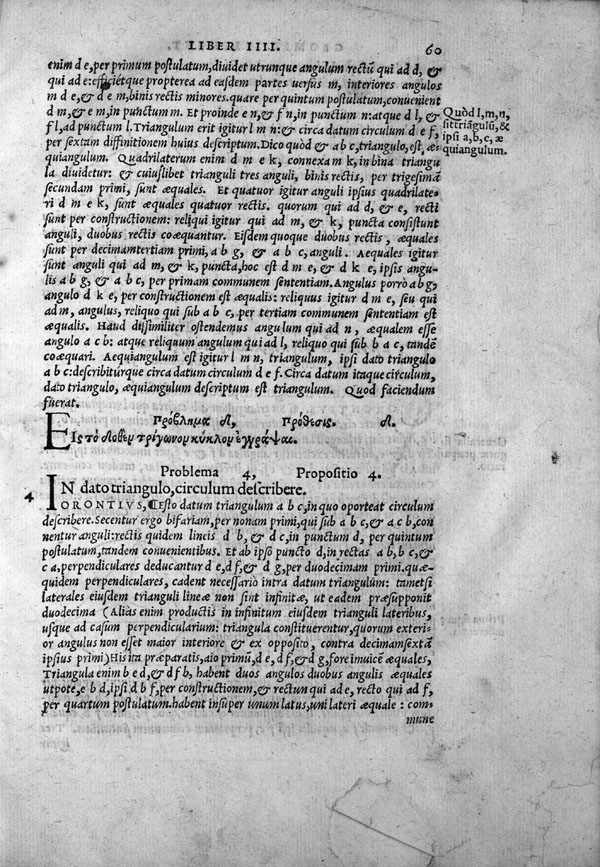 LIBER IIII. 60
enim d e, per primum postulatum, diuidet utrunque angulum rectū qui ad d, &
qui ad e: efficiétque propterea ad easdem partes uersus m, interiores angulos
m d e, & d e m, binis rectis minores. quare per quintum postulatum, conuenient
d m, & e m, in punctum m. Et proinde e n, & f n, in punctum n: atque d l, &
f l, ad punctum l. Triangulum erit igitur l m n: & circa datum circulum d e f,
per sextam diffinitionem huius descriptum. Dico quòd & a b c, triangulo, est, æ-
quiangulum. Quadrilaterum enim d m e k, connexa m k, in bina triangu
la diuidetur: & cuiuslibet trianguli tres anguli, binis rectis, per trigesimā
secundam primi, sunt æquales. Et quatuor igitur anguli ipsius quadrilate-
ri d m e k, sunt æquales quatuor rectis. quorum qui ad d, & e, recti
sunt per constructionem: reliqui igitur qui ad m, & k, puncta consistunt
anguli, duobus rectis coæquantur. Eisdem quoque duobus rectis, æquales
sunt per decimamtertiam primi, a b g, & a b c, anguli. Aequales igitur
sunt anguli qui ad m, & k, puncta, hoc est d m e, & d k e, ipsis angu-
lis a b g, & a b c, per primam communem sententiam. Angulus porrò a b g,
angulo d k e, per constructionem est æqualis: reliquus igitur d m e, seu qui
ad m, angulus, reliquo qui sub a b c, per tertiam communem sententiam est
æqualis. Haud dissimiliter ostendemus angulum qui ad n, æqualem esse
angulo a c b: atque reliquum angulum qui ad l, reliquo qui sub b a c, tandē
coæquari. Aequiangulum est igitur l m n, triangulum, ipsi dato triangulo
a b c: describitúrque circa datum circulum d e f. Circa datum itaque circulum,
dato triangulo, æquiangulum descriptum est triangulum. Quod faciendum
fuerat.
Quòd l, m, n,
sit triāgulū, &
ipsi a, b, c, æ
quiangulum.
Πρόβλημα δ, πρόθεσις. δ.
Εἰς τὸ δοθὲν τρίγωνον κύκλον ἐγγράψαι.
Problema 4, Propositio 4.
4 IN dato triangulo, circulum describere.
ORONTIVS, ¶Esto datum triangulum a b c, in quo oporteat circulum
describere. Secentur ergo bifariam, per nonam primi, qui sub a b c, & a c b, con
nentur anguli: rectis quidem lineis d b, & d c, in punctum d, per quintum
postulatum, tandem conuenientibus. Et ab ipso puncto d, in rectas a b, b c, &
c a, perpendiculares deducantur d e, d f, & d g, per duodecimam primi. quæ-
quidem perpendiculares, cadent necessariò intra datum triangulum: tametsi
laterales eiusdem trianguli lineæ non sint infinitæ, ut eadem præsupponit
duodecima (Aliàs enim productis in infinitum eiusdem trianguli lateribus,
usque ad casum perpendicularium: triangula constituerentur, quorum exteri-
or angulus non esset maior interiore & ex opposito, contra decimamsextā
ipsius primi) His ita præparatis, aio primū, d e, d f, & d g, fore inuicē æquales,
Triangula enim b e d, & d f b, habent duos angulos duobus angulis æquales
utpote, e b d, ipsi d b f, per constructionem, & rectum qui ad e, recto qui ad f,
per quartum postulatum. habent insuper unum latus, uni lateri æquale: com-
mune